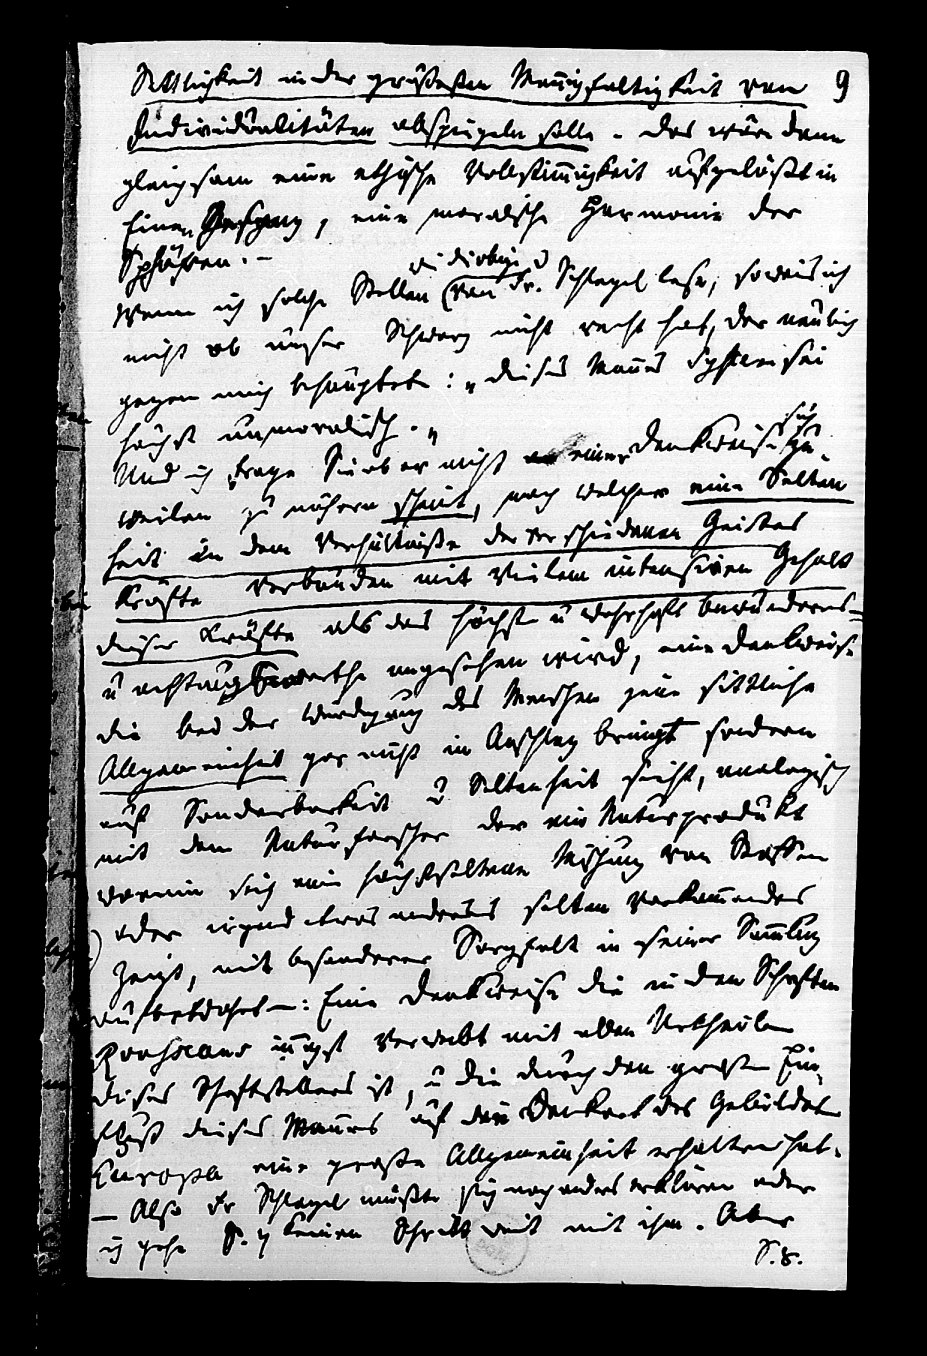 9
Sittlichkeit in der größesten Mannigfaltigkeit von
Individualitäten abspiegeln solle - das wäre dann
gleichsam eine ethische Vollstimmigkeit aufgelößt in
Einen Gesang, eine moralische Harmonie der
Sphären. -
wie die obige
Wenn ich solche Stellen (von Fr. Schlegel lese, so weis ich
nicht ob unser Schwarz nicht recht hat, der neulich
gegen mich behauptete: „dieses Mannes System sei
höchst unmoralisch."
Und ich frage Sie ob er nicht einer Denkweise
sich zu-
weilen zu nähern scheint, nach welcher eine Selten
heit in dem Verhältniße der verschiedenen Geistes
Kräfte verbunden mit vielem intensiven Gehalt
dieser Kräfte als das höchste u wahrhaft bewunderns=
u achtungswerthe angesehen wird, eine Denkweise
die bei der Würdigung des Menschen jene sittliche
Allgemeinheit gar nicht in Anschlag bringt sondern
auf Sonderbarkeit u Seltenheit sieht, analogisch
mit dem Naturforscher der ein Naturprodukt
worin sich eine höchstseltene Mischung von Stoffen
oder irgend etwas anderes selten vorkommendes
zeigt, mit besonderer Sorgfalt in seiner Sammlung
aufbewahret -: Eine Denkweise die in den Schriften
Rousseaus innigst verwebt mit allen Urtheilen
dieses Schriftstellers ist, u die durch den großen Ein-
fluß dieses Mannes auf die Denkart des gebildeten
Europa eine große Allgemeinheit erhalten hat.
- Also Fr Schlegel müßte sich noch anders erklären oder
ich gehe keinen Schritt weit mit ihm. Aber
S. 8.